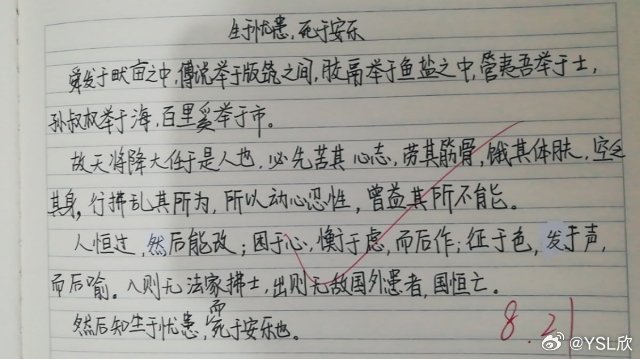 生于忧患,死于安乐
舜发于畎亩之中,傅说举于版筑之间,胶鬲举于鱼盐之中,管夷吾举于士,
孙叔敖举于海,百里奚举于市。
故天将降大任于是人也,必先苦其心志,劳其筋骨,饿其体肤,空乏
其身,行拂乱其所为,所以动心忍性,曾益其所不能。
人恒过,然后能改;困于心,衡于虑,而后作;征于色,发于声,
而后喻。入则无法家拂士,出则无敌国外患者,国恒亡。
然后知生于忧患,而死于安乐也。
8.21
@YSL欣